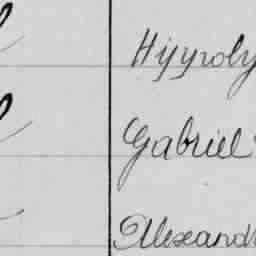 Hyppoly
Gabriel
Alexand